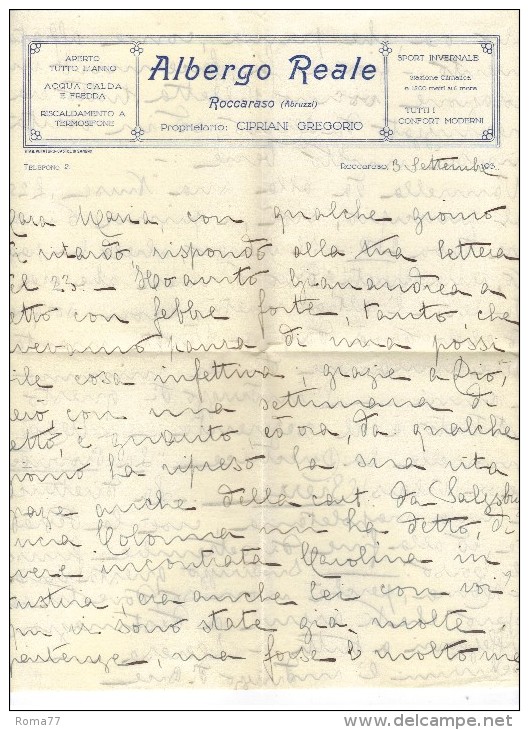 APERTO
TUTTO L'ANNO
ACQUA CALDA
E FREDDA
RISCALDAMENTO A
TERMOSIFONE
Albergo Reale
Roccaraso (Abruzzi)
Proprietario: CIPRIANI GREGORIO
SPORT INVERNALE
Stazione Climatica
a 1250 metri sul mare
TUTTI I
CONFORT MODERNI
TELEFONO 2
Roccaraso, 3 Settembre 193
Cara Maria, con qualche giorno
di ritardo rispondo alla tua lettera
del 23 – Ho avuto Gianandrea a
letto con febbre forte, tanto, che
avevamo paura di una possi
bile cosa infettiva, grazie a Dio,
però con una settimana di
letto, è guarito ed ora, da qualche
giorno ha ripreso la sua vita
anche della da Salzbu
Colonna mi ha detto, di
avere incontrato Carolina in
Austria, era anche lei con voi?
vi sono state già molte
partenze, ma forse è molto me
Roma77
www.delcampe.net